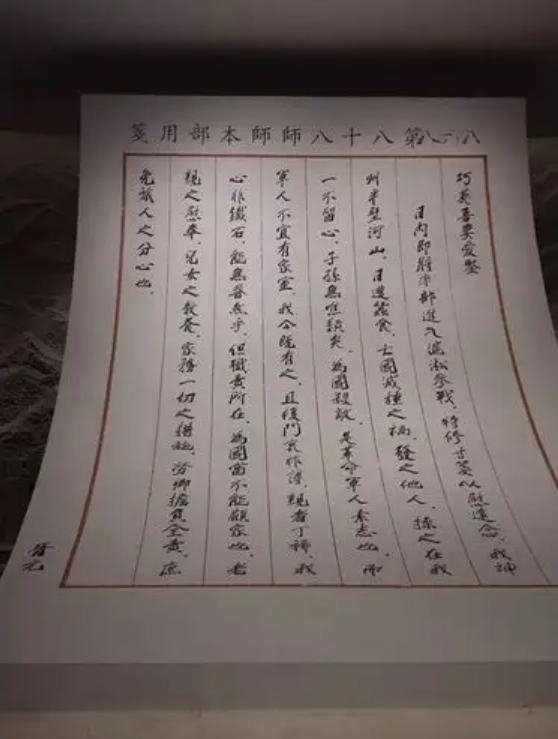 第八十八師師本部用箋
巧英吾妻愛鑒
日內即將率部進入滬淞參戰，特修寸箋以慰遠念。我神
州半壁河山，日遭蠶食，亡國滅種之禍，發之他人，操之在我
一不留心，子孫無噍類矣。為國殺敵，是革命軍人素志也，而
軍人不宜有家室，我今既有之，且後門衰祚薄，親者丁稀，我
心非鐵石，能無眷然乎，但職責所在，為國當不能顧家也。老
親之慰奉，兒女之教養，家務一切之措施，勞卿擔負全責，庶
免旅人之分心也。
晉元